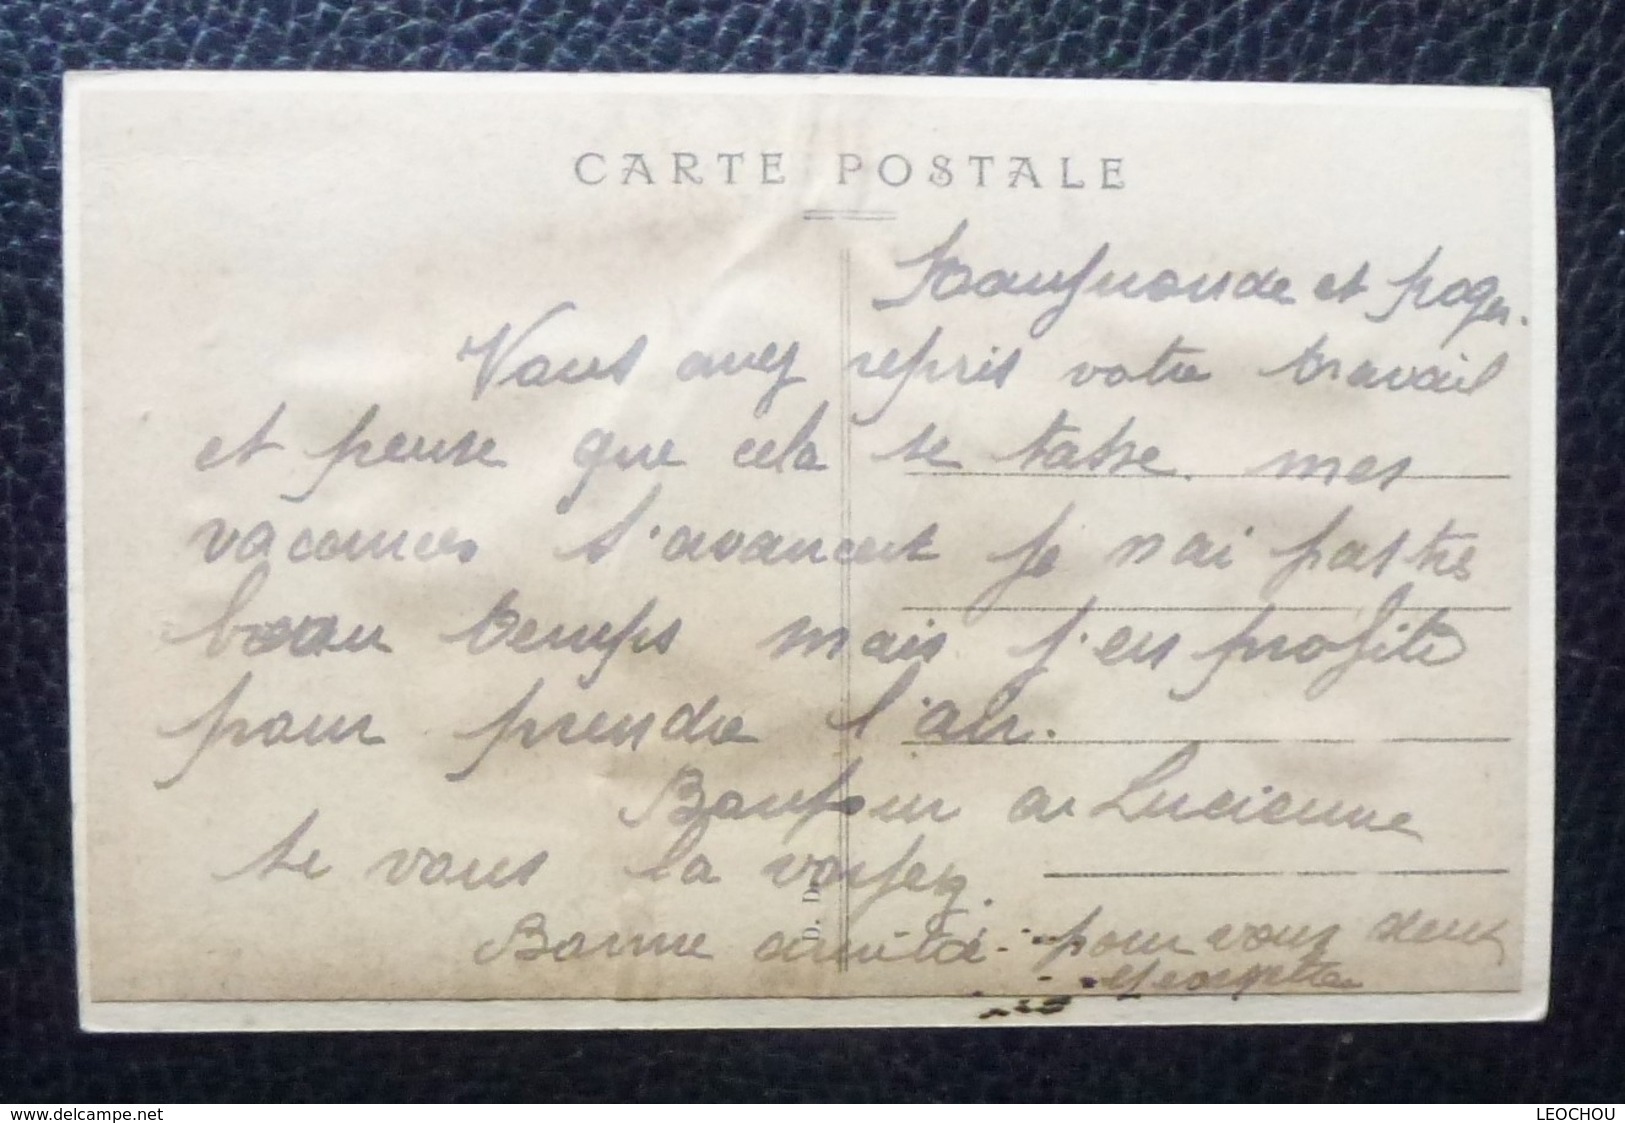 CARTE POSTALE
et Roger.
Vous avez repris votre travail
et pense que cela se tasse. mes
vacances s'avancent je n'ai pas très
beau temps mais j'en profite
pour prendre l'air.
Bonjour a Lucienne
se vous la voyez.
Bonne amitié pour vous deux
Georgette
D. D.
www.delcampe.net
LEOCHOU